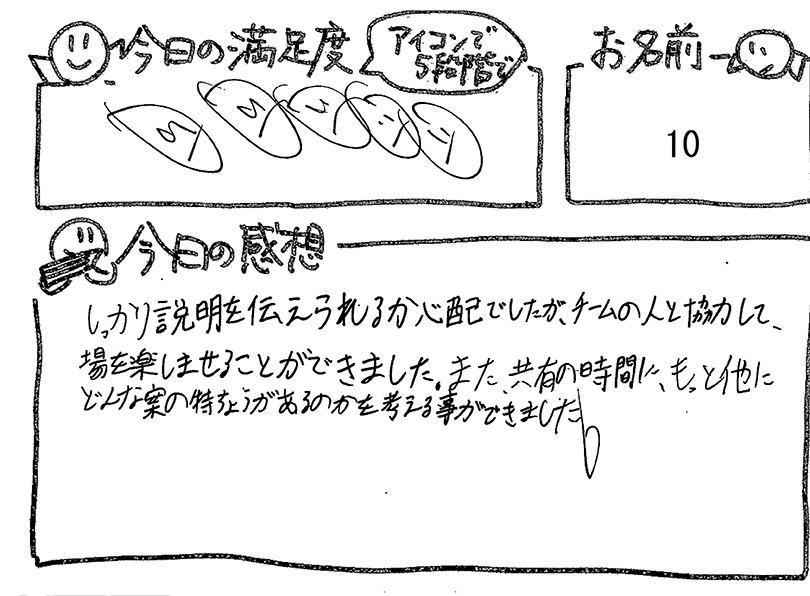 今日の満足度
アイコンで
5段階で
お名前
10
今日の感想
しっかり説明を伝えられるか心配でしたが、チームの人と協力して、
場を楽しませることができました。また、共有の時間に、もっと他に
どんな案の特ちょうがあるのかを考える事ができました。